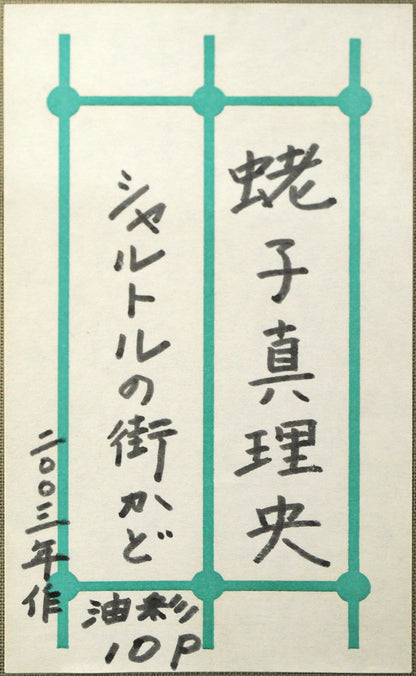 蛯子真理央
シャルトルの街かど
油彩
10P
二〇〇三年作